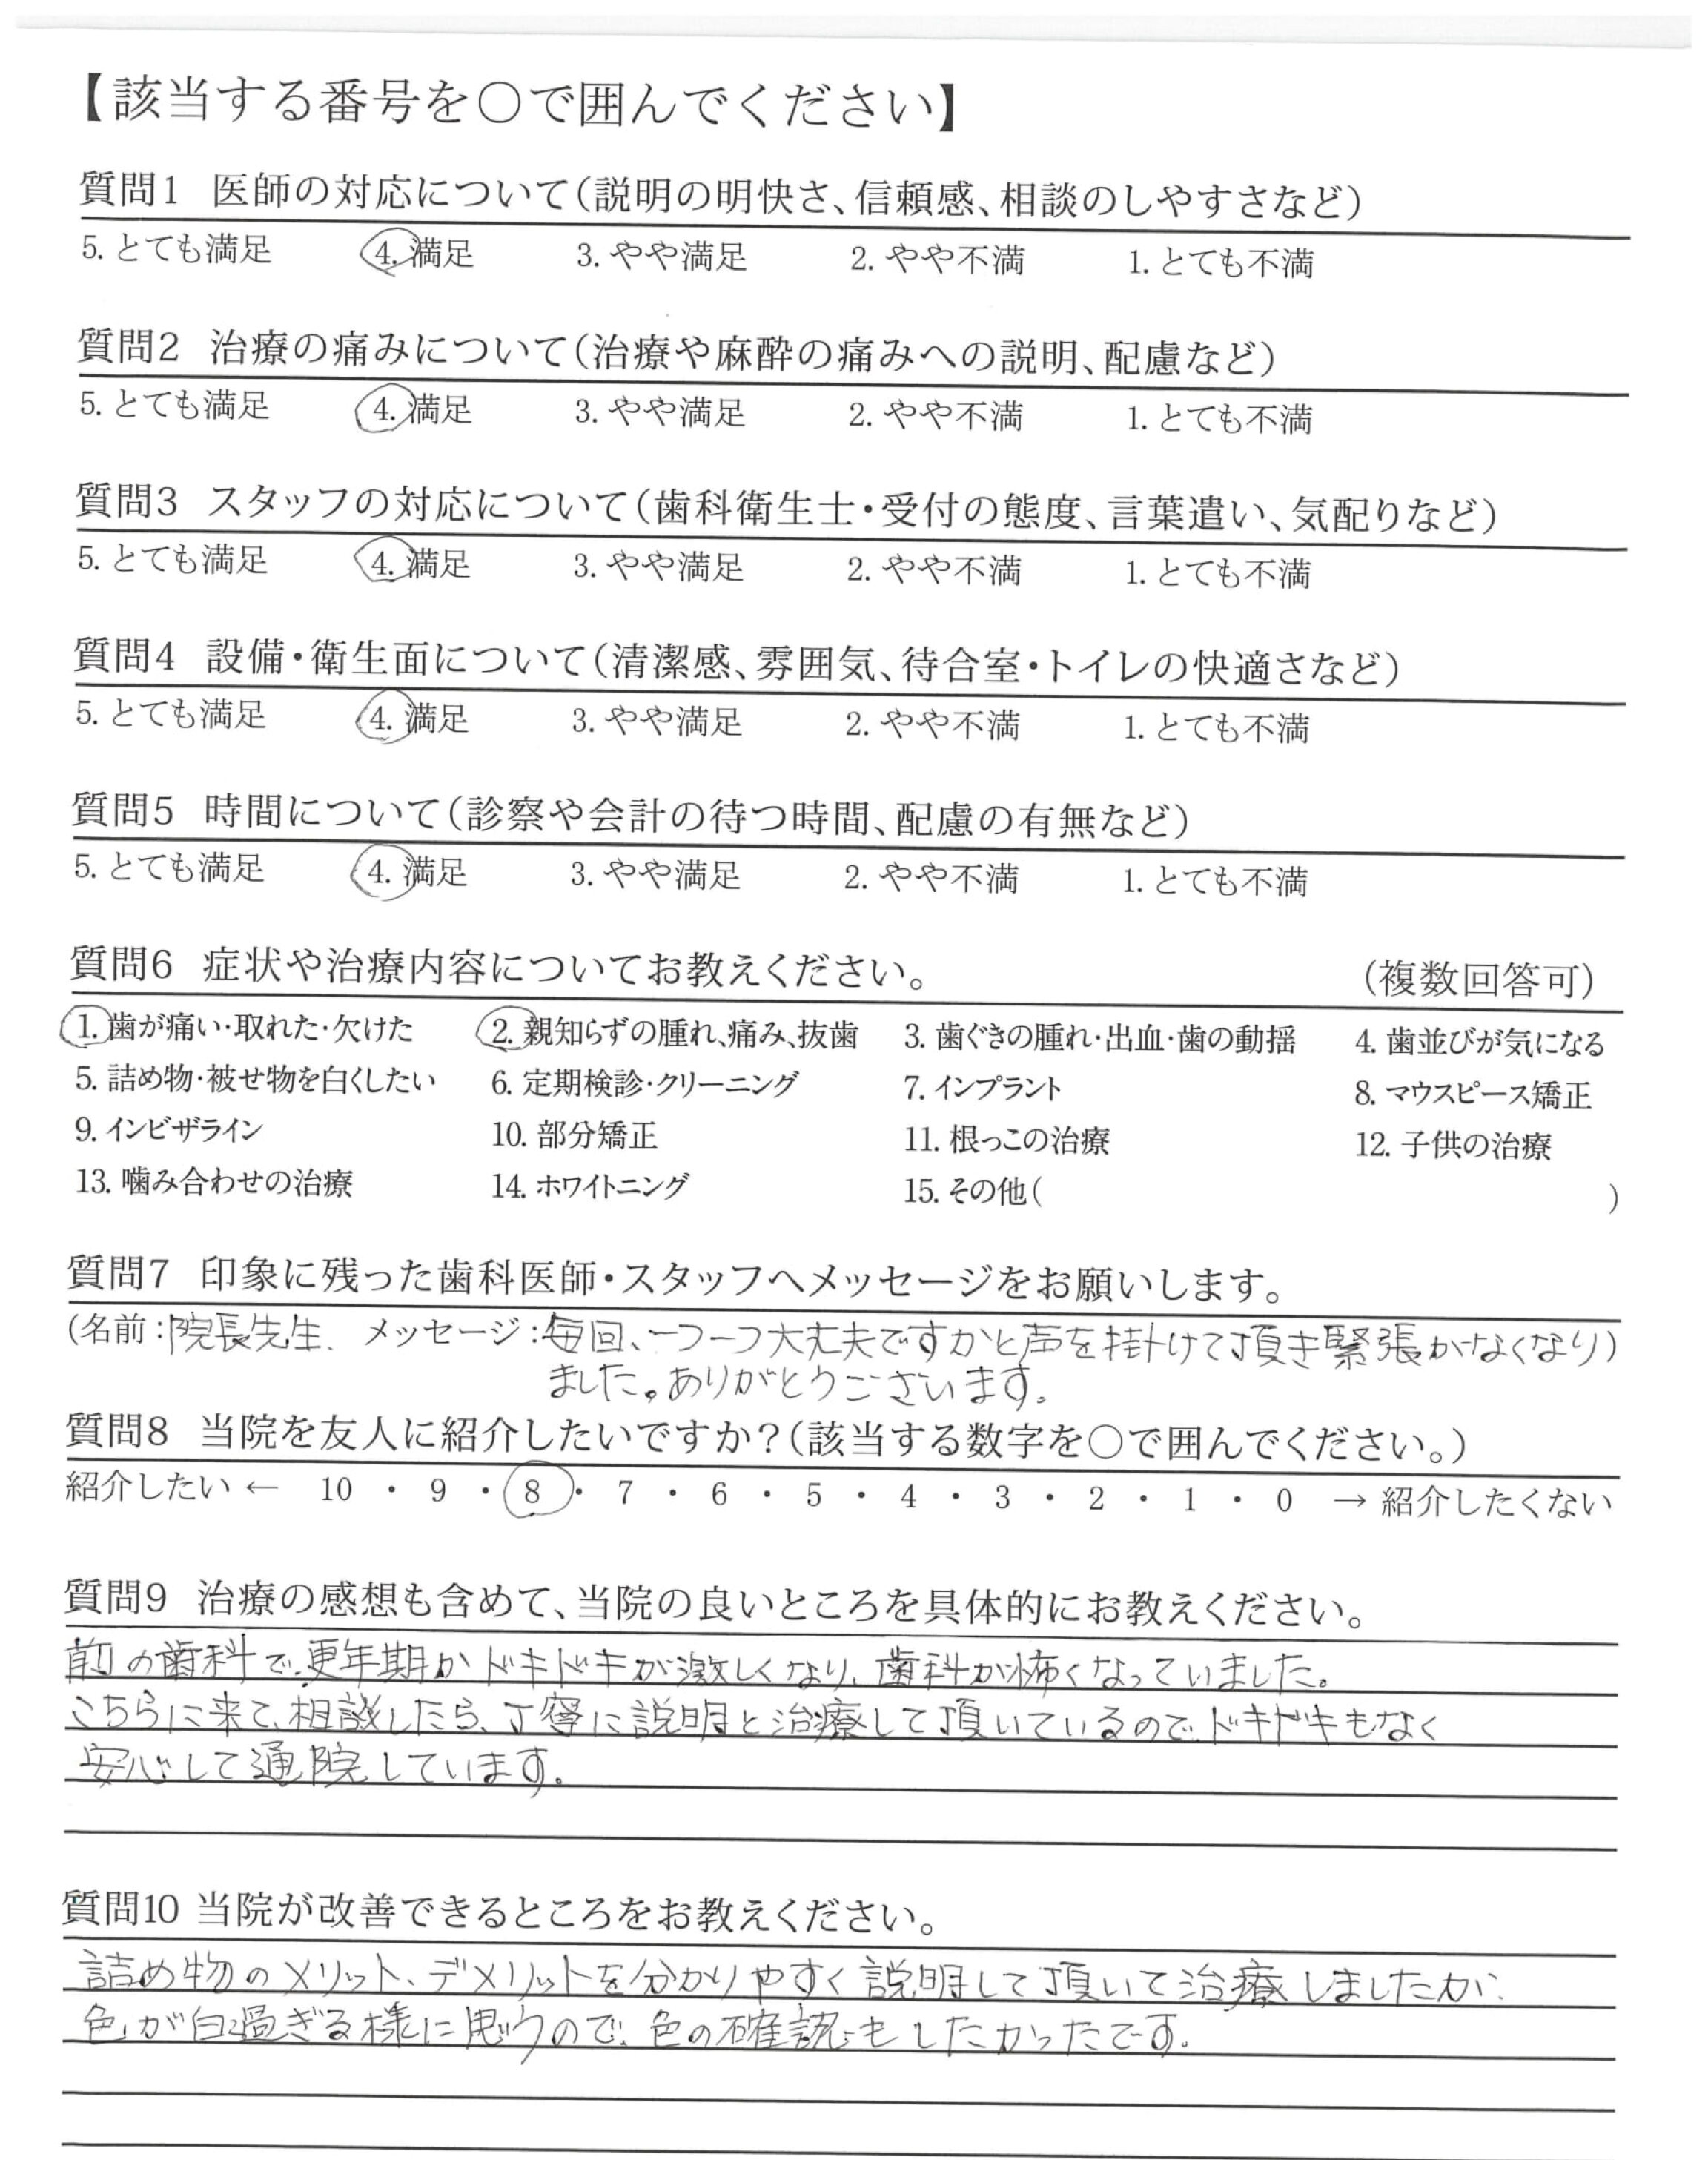 【該当する番号を○で囲んでください】
質問1 医師の対応について(説明の明快さ、信頼感、相談のしやすさなど)
5. とても満足 4. 満足 3. やや満足 2. やや不満 1. とても不満
質問2 治療の痛みについて(治療や麻酔の痛みへの説明、配慮など)
5. とても満足 4. 満足 3. やや満足 2. やや不満 1. とても不満
質問3 スタッフの対応について(歯科衛生士・受付の態度、言葉遣い、気配りなど)
5. とても満足 4. 満足 3. やや満足 2. やや不満 1. とても不満
質問4 設備・衛生面について(清潔感、雰囲気、待合室・トイレの快適さなど)
5. とても満足 4. 満足 3. やや満足 2. やや不満 1. とても不満
質問5 時間について(診察や会計の待つ時間、配慮の有無など)
5. とても満足 4. 満足 3. やや満足 2. やや不満 1. とても不満
質問6 症状や治療内容についてお教えください。 (複数回答可)
1. 歯が痛い・取れた・欠けた 2. 親知らずの腫れ、痛み、抜歯 3. 歯ぐきの腫れ・出血・歯の動揺 4. 歯並びが気になる
5. 詰め物・被せ物を白くしたい 6. 定期検診・クリーニング 7. インプラント 8. マウスピース矯正
9. インビザライン 10. 部分矯正 11. 根っこの治療 12. 子供の治療
13. 噛み合わせの治療 14. ホワイトニング 15. その他( )
質問7 印象に残った歯科医師・スタッフへメッセージをお願いします。
(名前:院長先生. メッセージ:毎回、一つ一つ大丈夫ですかと声を掛けて頂き緊張がなくなり)
ました。ありがとうございます。
質問8 当院を友人に紹介したいですか?(該当する数字を○で囲んでください。)
紹介したい ← 10 ・ 9 ・ 8 ・ 7 ・ 6 ・ 5 ・ 4 ・ 3 ・ 2 ・ 1 ・ 0 → 紹介したくない
質問9 治療の感想も含めて、当院の良いところを具体的にお教えください。
前の歯科で、更年期かドキドキが激しくなり、歯科が怖くなっていました。
こちらに来て、相談したら、丁寧に説明と治療して頂いているので、ドキドキもなく
安心して通院しています。
質問10 当院が改善できるところをお教えください。
詰め物のメリット、デメリットを分かりやすく説明して頂いて治療しましたが、
色が白過ぎる様に思うので、色の確認もしたかったです。